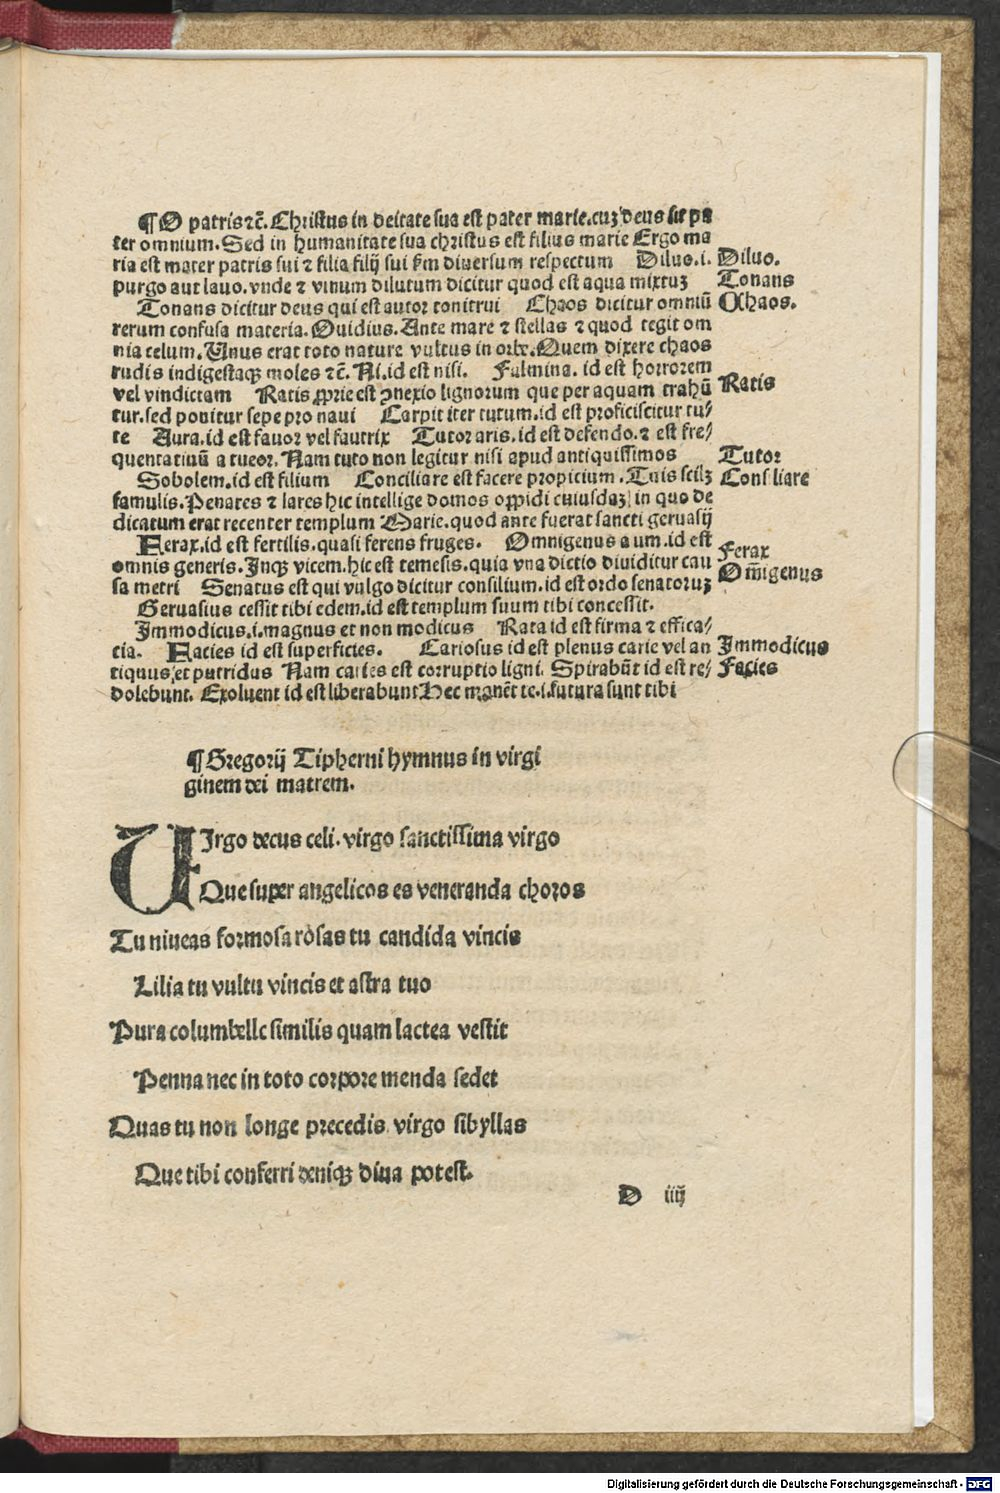 ¶O patris ⁊c̄. Christus in deitate sua est pater marie.cuꝫ deus sit pa
ter omnium. Sed in humanitate sua christus est filius marie Ergo ma
ria est mater patris sui ⁊ filia filij sui ẜm diuersum respectum Diluo.i. Diluo.
purgo aut lauo.vnde ⁊ vinum dilutum dicitur quod est aqua mixtuꝫ Tonans
Tonans dicitur deus qui est autor tonitrui Chaos dicitur omniū Chaos.
rerum confusa materia. Ouidius. Ante mare ⁊ stellas ⁊ quod tegit om
nia celum. Unus erat toto nature vultus in orbe. Quem dixere chaos
rudis indigestaqꝫ moles ⁊c̄. Ni.id est nisi. Fulmina. id est horrorem
vel vindictam Ratis ꝓprie est ꝯnexio lignorum que per aquam trahū Ratis
tur.sed ponitur sepe pro naui Carpit iter tutum.id est proficiscitur tu/
te Aura.id est fauor vel fautrix Tutor aris.id est defendo.⁊ est fre/
quentatiuū a tueor. Nam tuto non legitur nisi apud antiquissimos Tutor
Sobolem.id est filium Conciliare est facere propicium. Tuis scilꝫ Consiliare
famulis. Penates ⁊ lares hic intellige domos oppidi cuiusdaꝫ in quo de
dicatum erat recenter templum Marie.quod ante fuerat sancti geruasij
Ferax.id est fertilis.quasi ferens fruges. Omnigenus a um.id est Ferax
omnis generis. Inqꝫ vicem.hic est temesis.quia vna dictio diuiditur cau Om̄igenus
sa metri Senatus est qui vulgo dicitur consilium.id est ordo senatoruꝫ
Geruasius cessit tibi edem.id est templum suum tibi concessit.
Immodicus.i.magnus et non modicus Rata id est firma ⁊ effica/
cia. Facies id est superficies. Cariosus id est plenus carie vel an Immodicus
tiquus et putridus Nam caries est corruptio ligni. Spirabūt id est re/ Facies
dolebunt. Exoluent id est liberabunt Hec manēt te.i.futura sunt tibi
¶Gregorij Tipherni hymnus in virgi
ginem dei matrem.
UIrgo decus celi. virgo sanctissima virgo
Que super angelicos es veneranda choros
Tu niueas formosa rosas tu candida vincis
Lilia tu vultu vincis et astra tuo
Pura columbelle similis quam lactea vestit
Penna nec in toto corpore menda sedet
Quas tu non longe precedis virgo sibyllas
Que tibi conferri deniqꝫ diua potest.
D iiij
Digitalisierung gefördert durch die Deutsche Forschungsgemeinschaft - DFG